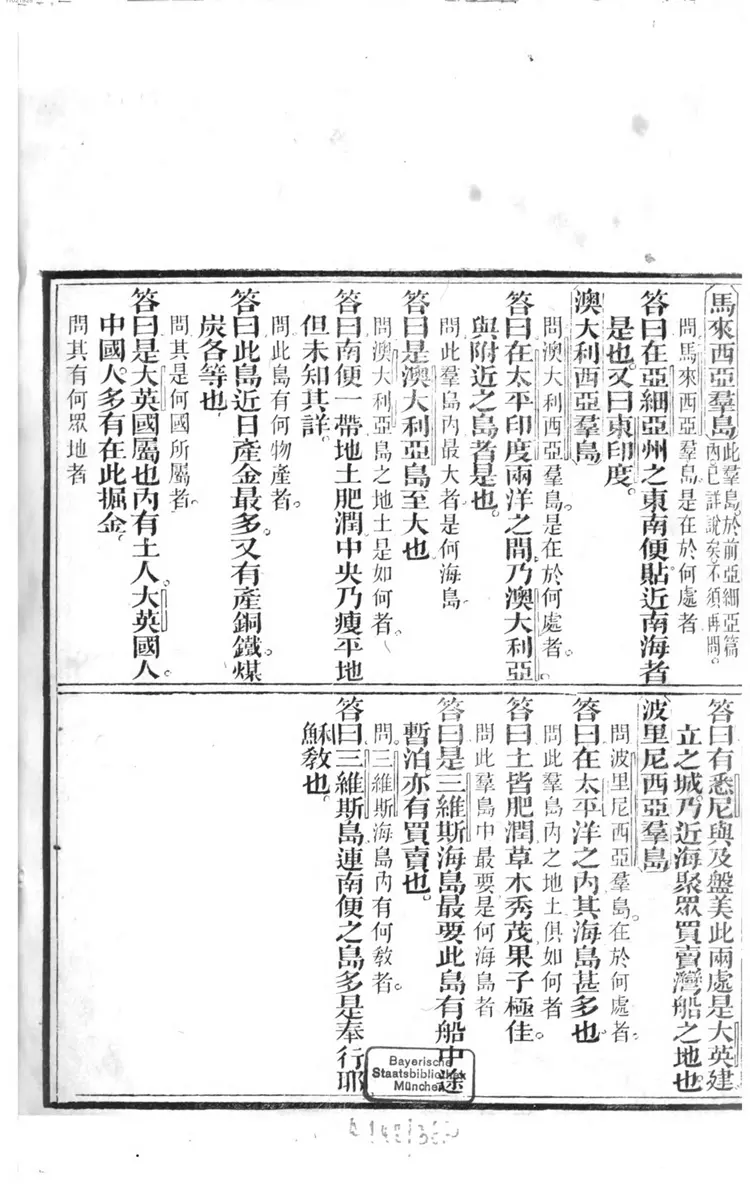 馬來西亞羣島此羣島於前亞細亞篇
內已詳說矣不須再問。
問馬來西亞羣島是在於何處者
答曰在亞細亞州之東南便貼近南海者
是也又曰東印度。
澳大利西亞羣島
問澳大利西亞羣島是在於何處者。
答曰在太平印度兩洋之間乃澳大利亞
與附近之島者是也。
問此羣島內最大者是何海島。
答曰是澳大利亞島至大也
問澳大利亞島之地土是如何者。
答曰南便一帶地土肥潤中央乃瘦平地
但未知其詳。
問此島有何物產者。
答曰此島近日產金最多又有產銅鐵煤
炭各等也
問其是何國所屬者。
答曰是大英國屬也內有土人大英國人
中國人多有在此掘金。
問其有何眾地者
答曰有悉尼與及盤美此兩處是大英建
立之城乃近海聚眾買賣灣船之地也
波里尼西亞羣島
問波里尼西亞羣島在於何處者。
答曰在太平洋之內其海島甚多也
問此羣島內之地土俱如何者
答曰土皆肥潤草木秀茂果子極佳。
問此羣島中最要是何海島者
答曰是三維斯海島最要此島有船中途
暫泊亦有買賣也。
問三維斯海島內有何教者。
答曰三維斯島連南便之島多是奉行耶
穌教也。
Bayerische
Staatsbibliothek
München